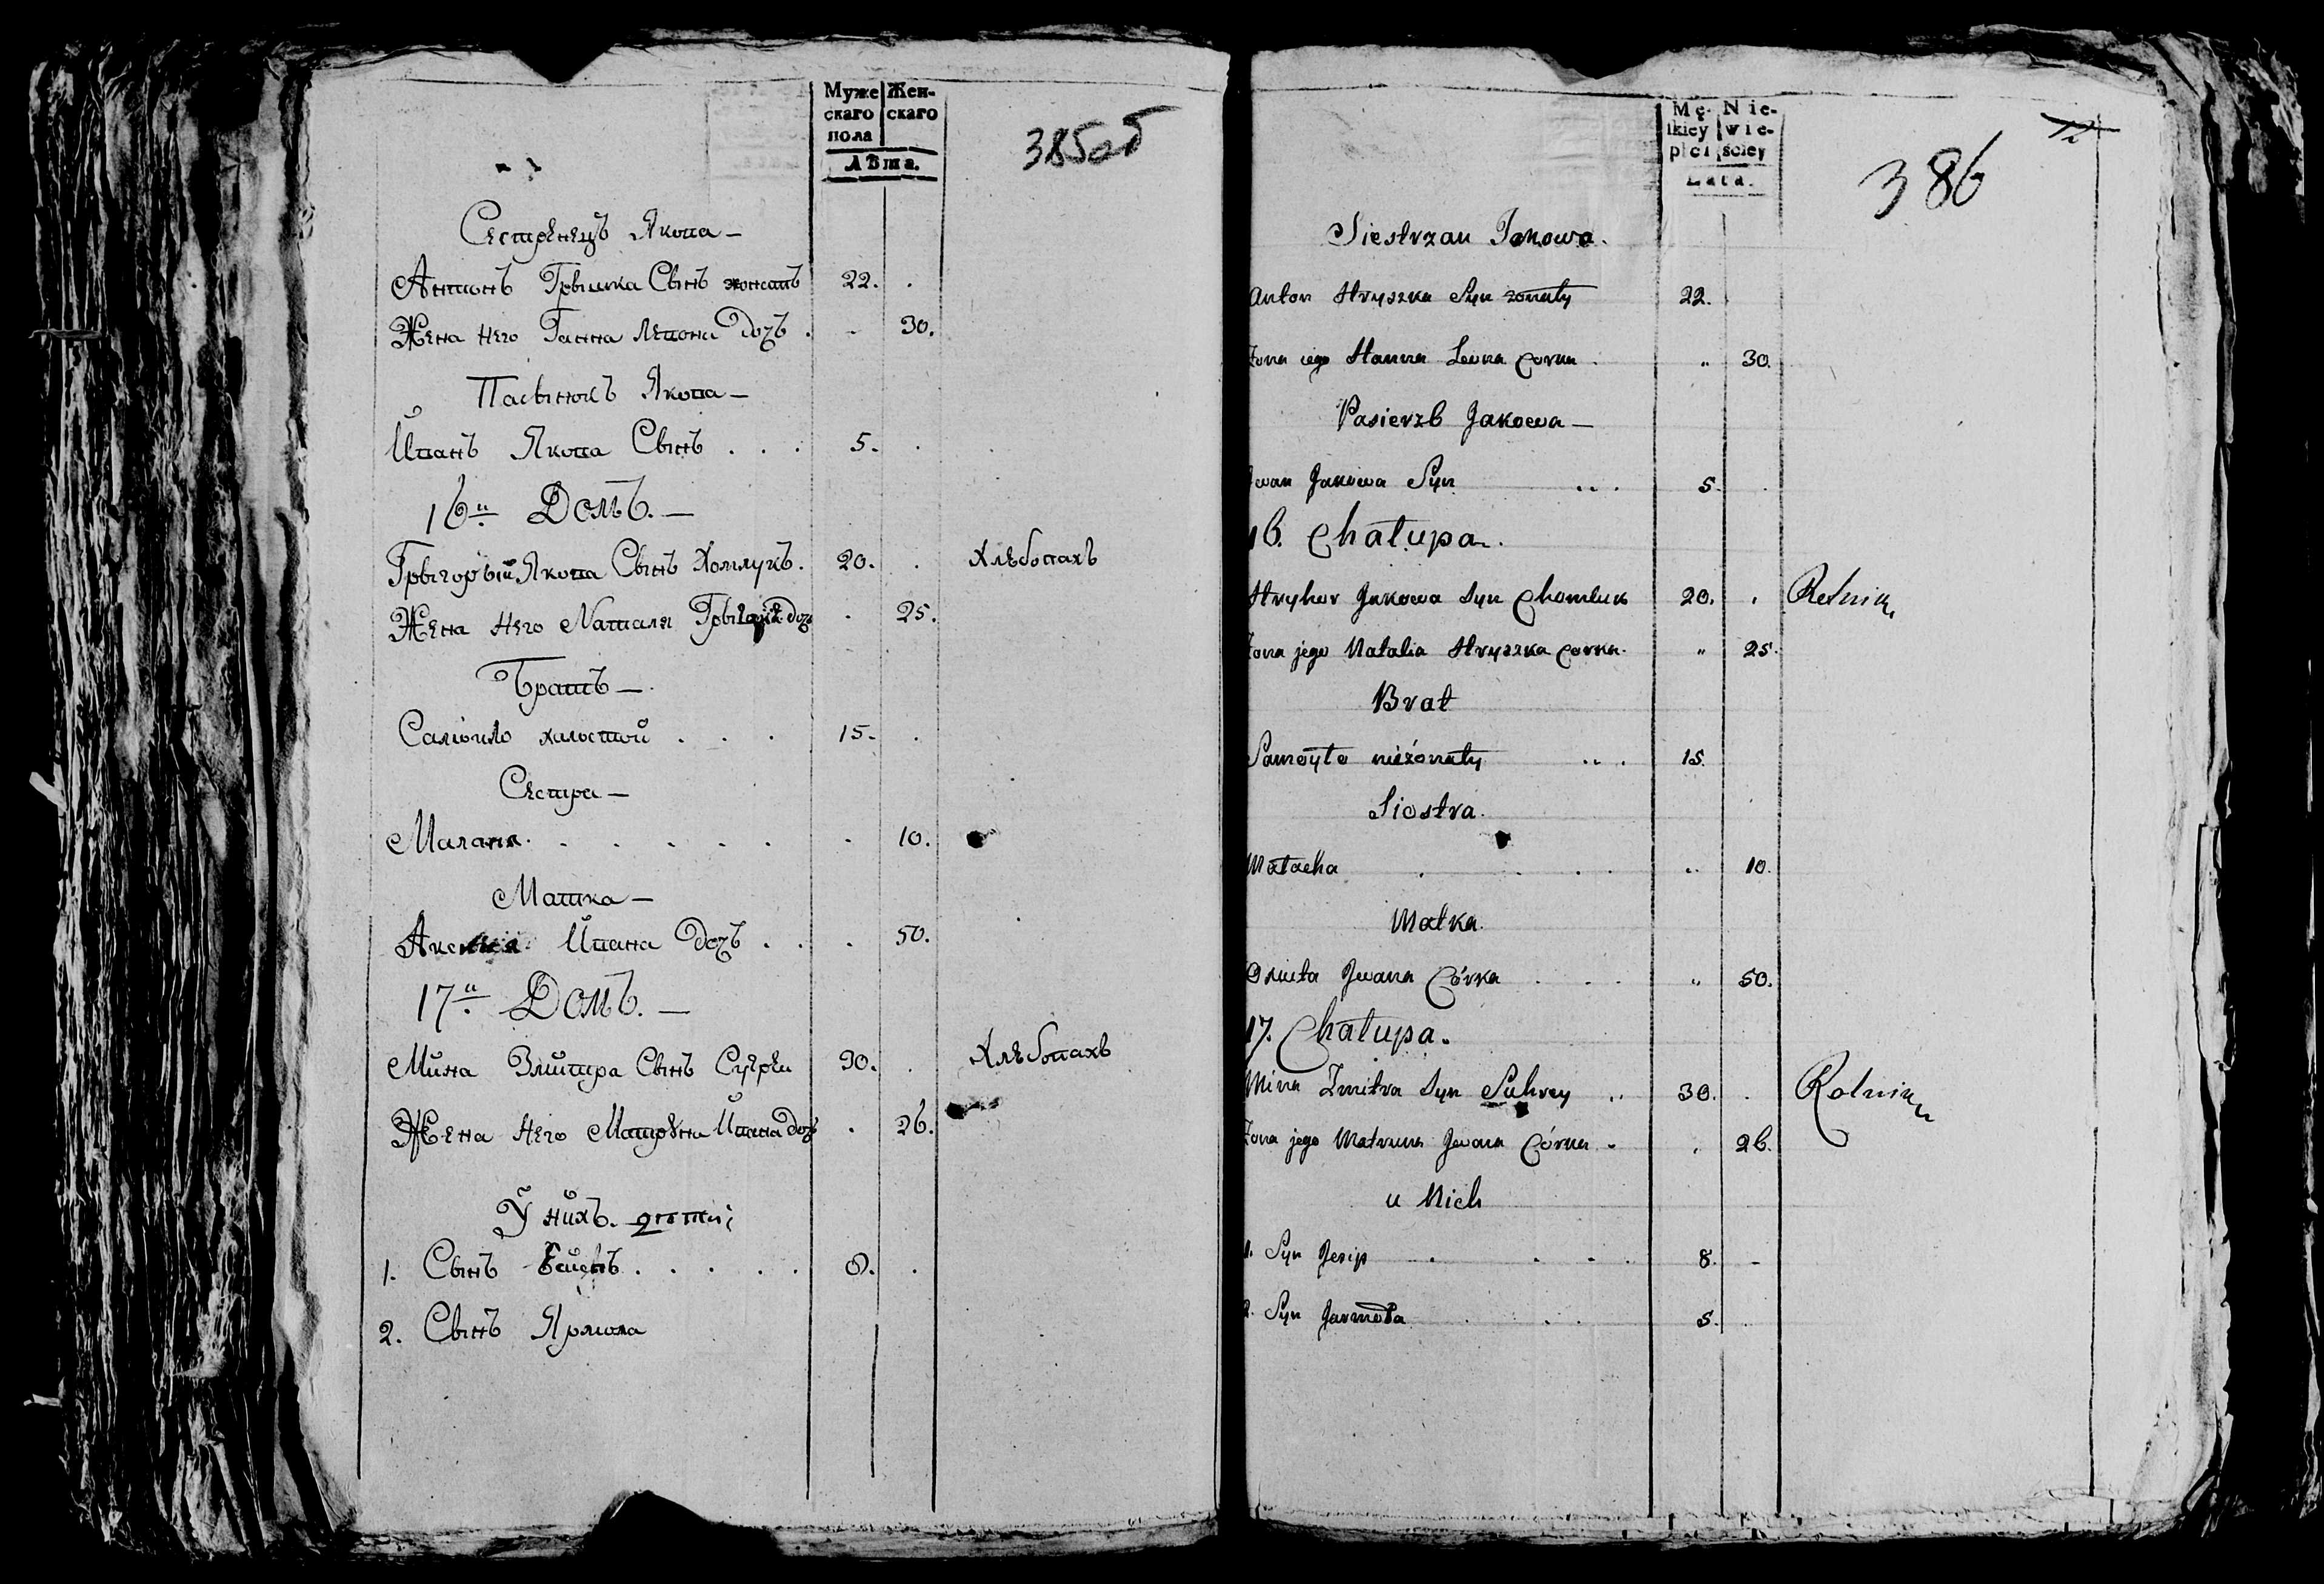 Муже Жен-
скаго скаго
пола
Лѣта.
385об
Сестренецъ Якова —
Антонъ Грышка Сынъ жонатъ 22. .
Жена Него Ганна Левона дочь . - 30.
Пасынокъ Якова —
Иванъ Якова Сынъ . . . 5. .
16й Домъ. —
Грыгорый Якова Сынъ Хомлукъ. 20. . Хлѣбопахъ
Жена Него Наталя дочь . 25.
Братъ —
Самойло халостой . . . 15. .
Сестра —
Маланя. . . . . . . 10.
Матка —
Ивана дочь . . . 50.
17й Домъ. —
Мина Змитра Сынъ Сугрей 30. . Хлѣбопахъ
Жена Него Матруна Ивана дочь . 26.
У нихъ дѣти;
1. Сынъ . . . . . 8. .
2. Сынъ Ярмола
Mę- Nie-
lkiey wie-
płci ściey
Lata.
386
12
Siestrzan Jakowa.
Anton Hryszka Syn żonaty 22.
Żona iego Hanna Leona Corka . „ 30.
Pasierzb Jakowa —
Jwan Jakowa Syn ... 5. .
16. Chałupa.
Hryhor Jakowa Syn Chomluk 20. . Rolnik
Żona jego Natalia Hryszka Corka. „ 25.
Brat
Samoyło nieżonaty ... 15.
Siostra.
Małacha . . . . .. 10.
Matka.
Jwana Córka . . . „ 50.
17. Chałupa.
Mina Zmitra Syn Suhrey .. 30. . Rolnik
Żona jego Matruna Jwana Córka - . 26.
u Nich
1. Syn Jesip . . . . 8. -
2. Syn Jarmoła . . . 5. .